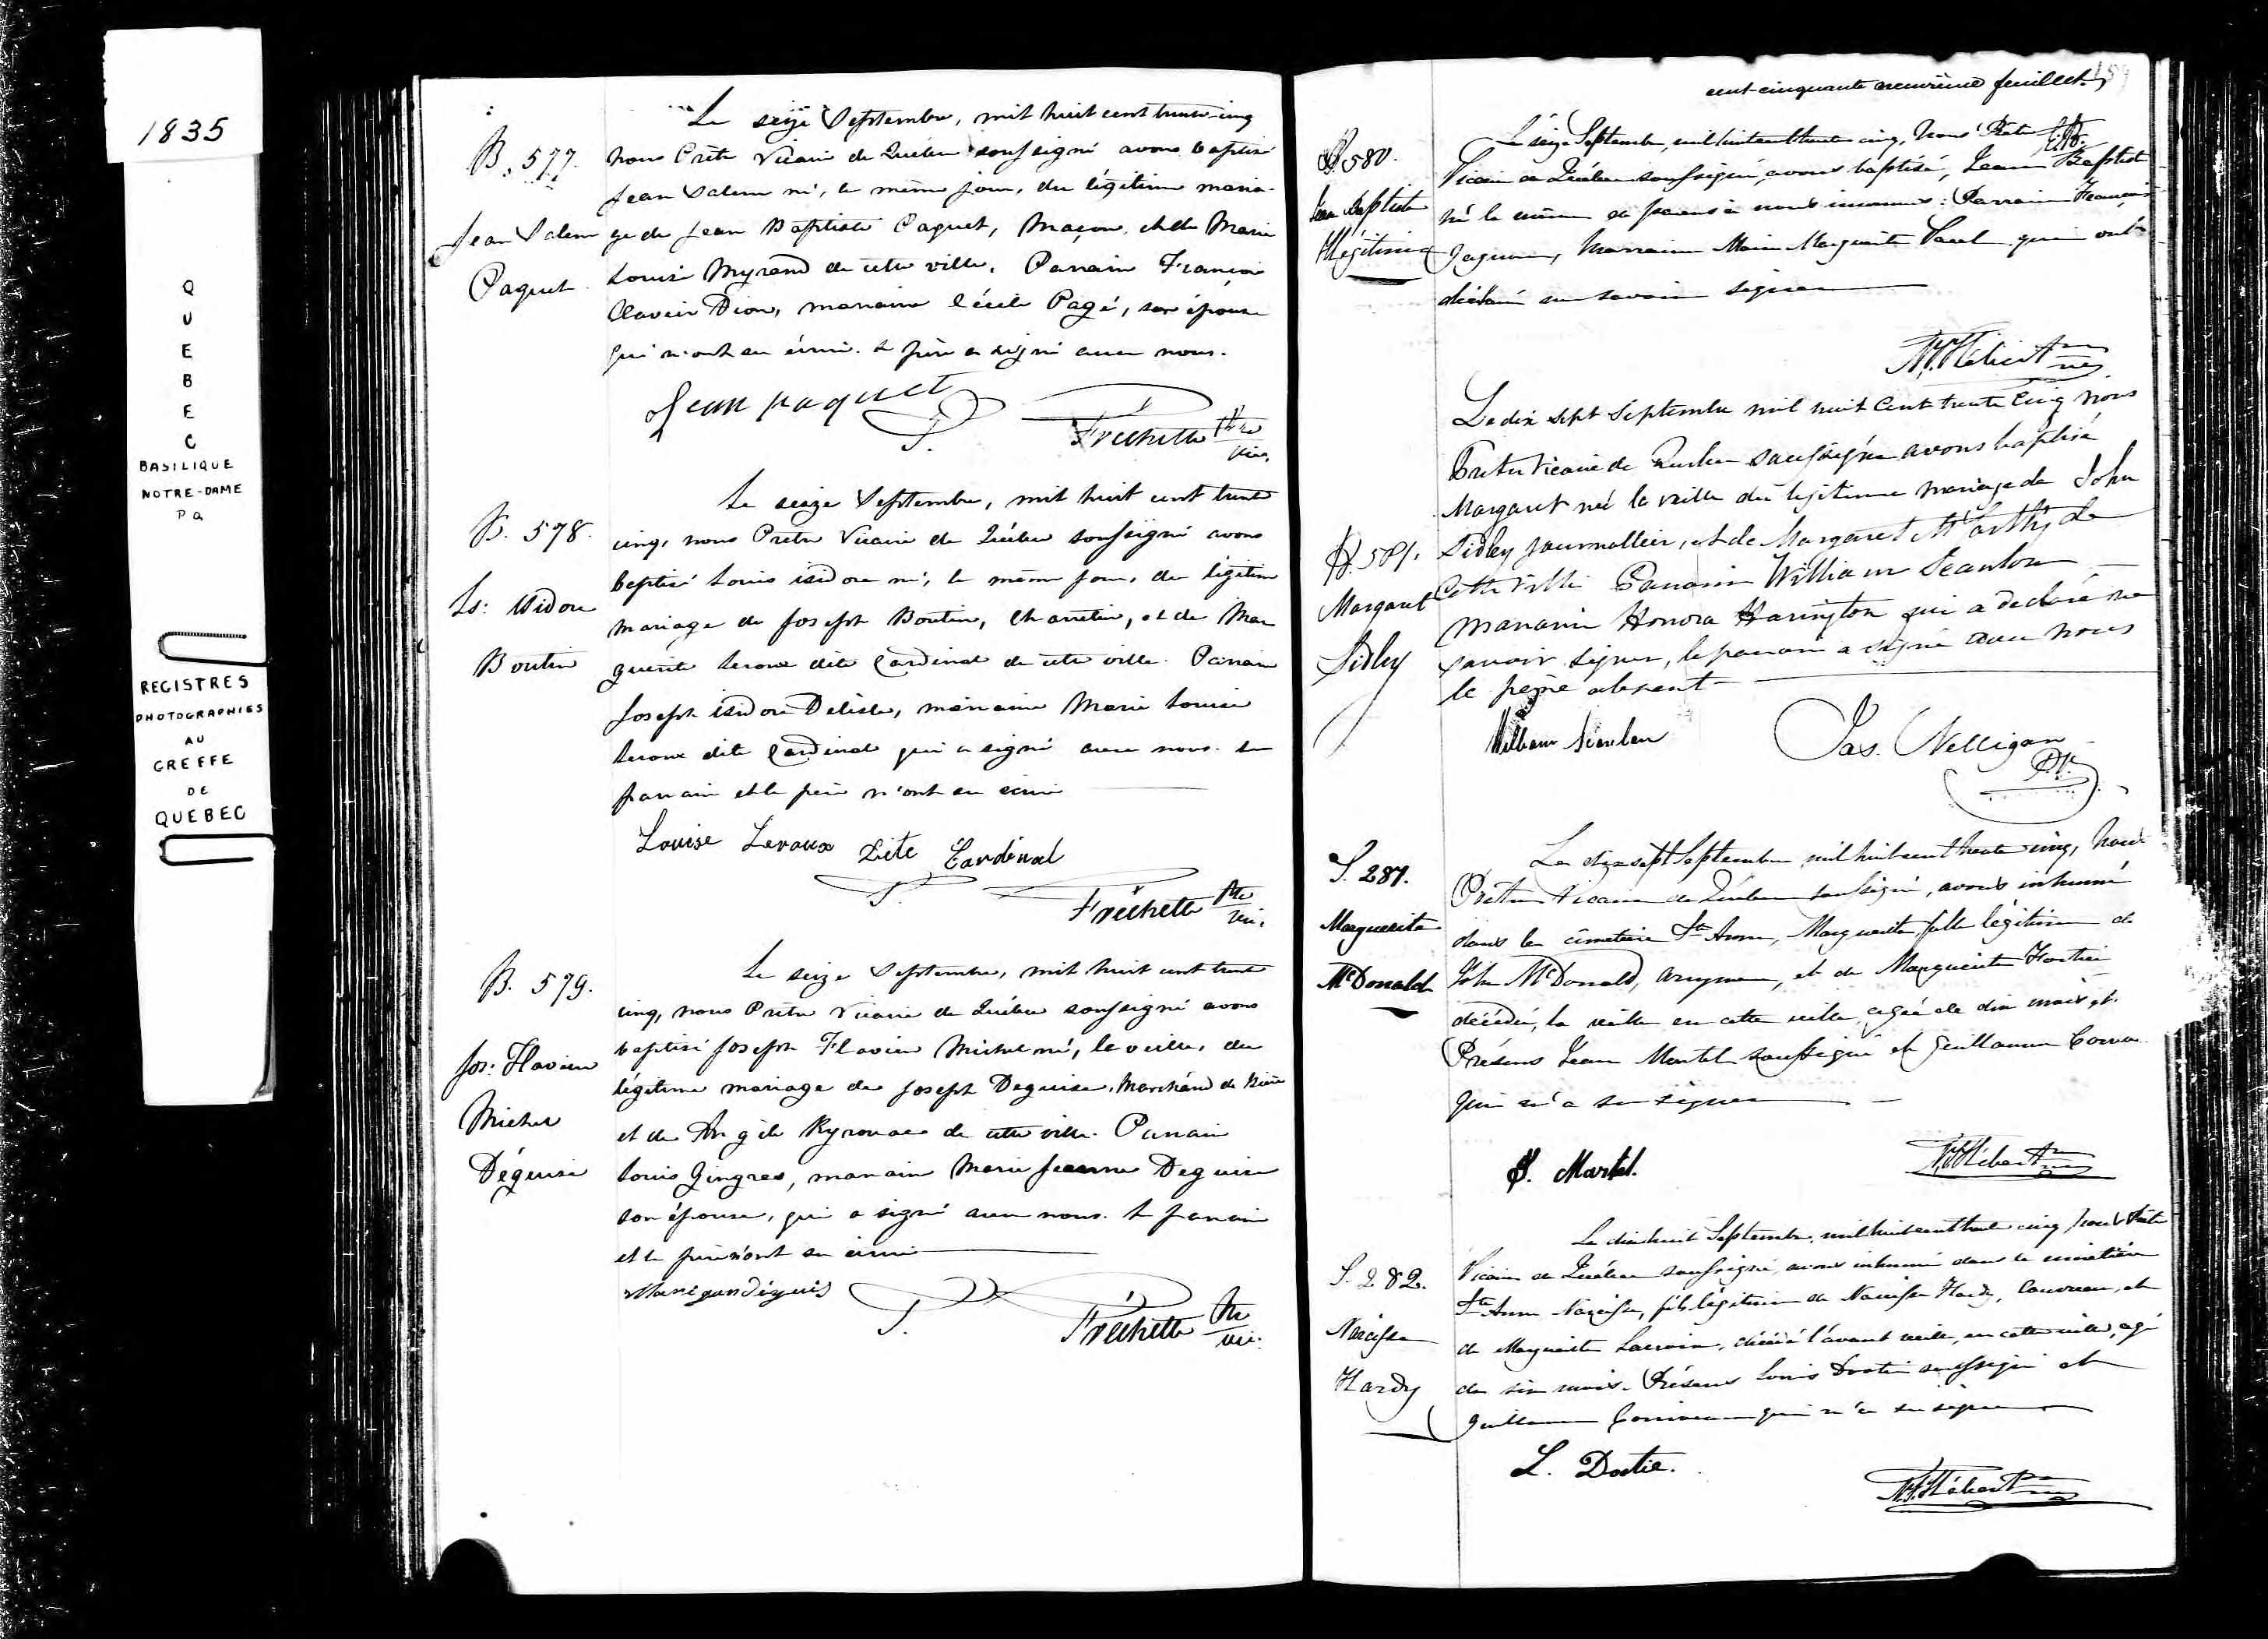 1835
QUEBEC
BASILIQUE
NOTRE-DAME
PQ
REGISTRES
PHOTOGRAPHIES
AU
GREFFE
DE
QUEBEC
Le seize Septembre, mil huit cent trente-cinq
B. 577. nous Prêtre Vicaire de Québec soussigné avons baptisé
Jean Salem né, le même jour, du légitime maria-
Jean Salem ge de Jean Baptiste Paquet, Maçon, et de Marie
Paquet Louise Myrand de cette ville. Parrain François
Xavier Dion, marraine Cécile Pagé, son épouse
qui n'ont su écrire. Le père a signé avec nous.
Jean paquet
Fréchette Ptre
vic.
Le seize Septembre, mil huit cent trente
B. 578. cinq, nous Prêtre Vicaire de Québec soussigné avons
baptisé Louis isidore né, le même jour, du légitime
Ls: Isidore mariage de Joseph Boutin, Charretier, et de Mar
Boutin guerite Leroux dite Cardinal de cette ville. Parrain
Joseph isidore Delisle, marraine Marie Louise
Leroux dite Cardinal qui a signé avec nous. Le
parrain et le père n'ont su écrire
Louise Leroux Dite Cardinal
Fréchette Ptre
vic.
Le seize Septembre, mil huit cent trente
B. 579. cinq, nous Prêtre Vicaire de Québec soussigné avons
Jos: Flavien baptisé Joseph Flavien Michel né, la veille, du
légitime mariage de Joseph Deguise, Marchand de Bière
Michel et de Angèle Kyrouac de cette ville. Parrain
Déguise Louis Gingras, marraine Marie Jeanne Deguise
son épouse, qui a signé avec nous. Le parrain
et le père n'ont su écrire
Fréchette Ptre
vic.
159
cent-cinquante neuvième feuillet
Le seize Septembre, mil huit cent trente cinq, Nous Prêtre
B. 580. Vicaire de Québec soussigné, avons baptisé, Jean Baptiste
Jean Baptiste né le même de parens à nous inconnus: Parrain François
Illégitime Marraine Marie Marguerite Paul qui ont
déclaré ne savoir signer
N. T. Hébert Ptre
Le dix sept Septembre mil huit Cent trente Cinq Nous
Prêtre Vicaire de Quebec soussigné avons baptisé
Margaret né la veille du legitime mariage de John
B. 581. Sidley journallier, et de Margaret McCarthy de
Margaret Cette Ville Parrain William Scanlon
Sidley marraine Honora Harington qui a declaré ne
savoir signer, le parrain a signé avec nous
le père absent
William Scanlon
Jas. Nelligan
Ptr.
S. 281. Le dix sept Septembre mil huit cent trente cinq, nous
Prêtre Vicaire de Québec soussigné, avons inhumé
Marguerite dans le cimetière Ste Anne, Marguerite, fille légitime de
McDonald John McDonald, et de Marguerite Fortier
décédée, la veille en cette ville, agée de dix mois, et
Présens Jean Martel soussigné et Guillaume
qui n'a su signer
J. Martel.
N. T. Hébert Ptre
Le dix huit Septembre, mil huit cent trente cinq nous Prêtre
S. 282. Vicaire de Québec soussigné, avons inhumé dans le cimetière
Ste Anne Narcisse, fils légitime de Narcisse Hardy, Couvreur, et
Narcisse de Marguerite Lacroix, décédé l'avant veille, en cette ville, agé
Hardy de six mois. Présens Louis Dostie soussigné et
Guillaume Corriveau qui n'a su signer
L. Dostie.
N. T. Hébert Ptre